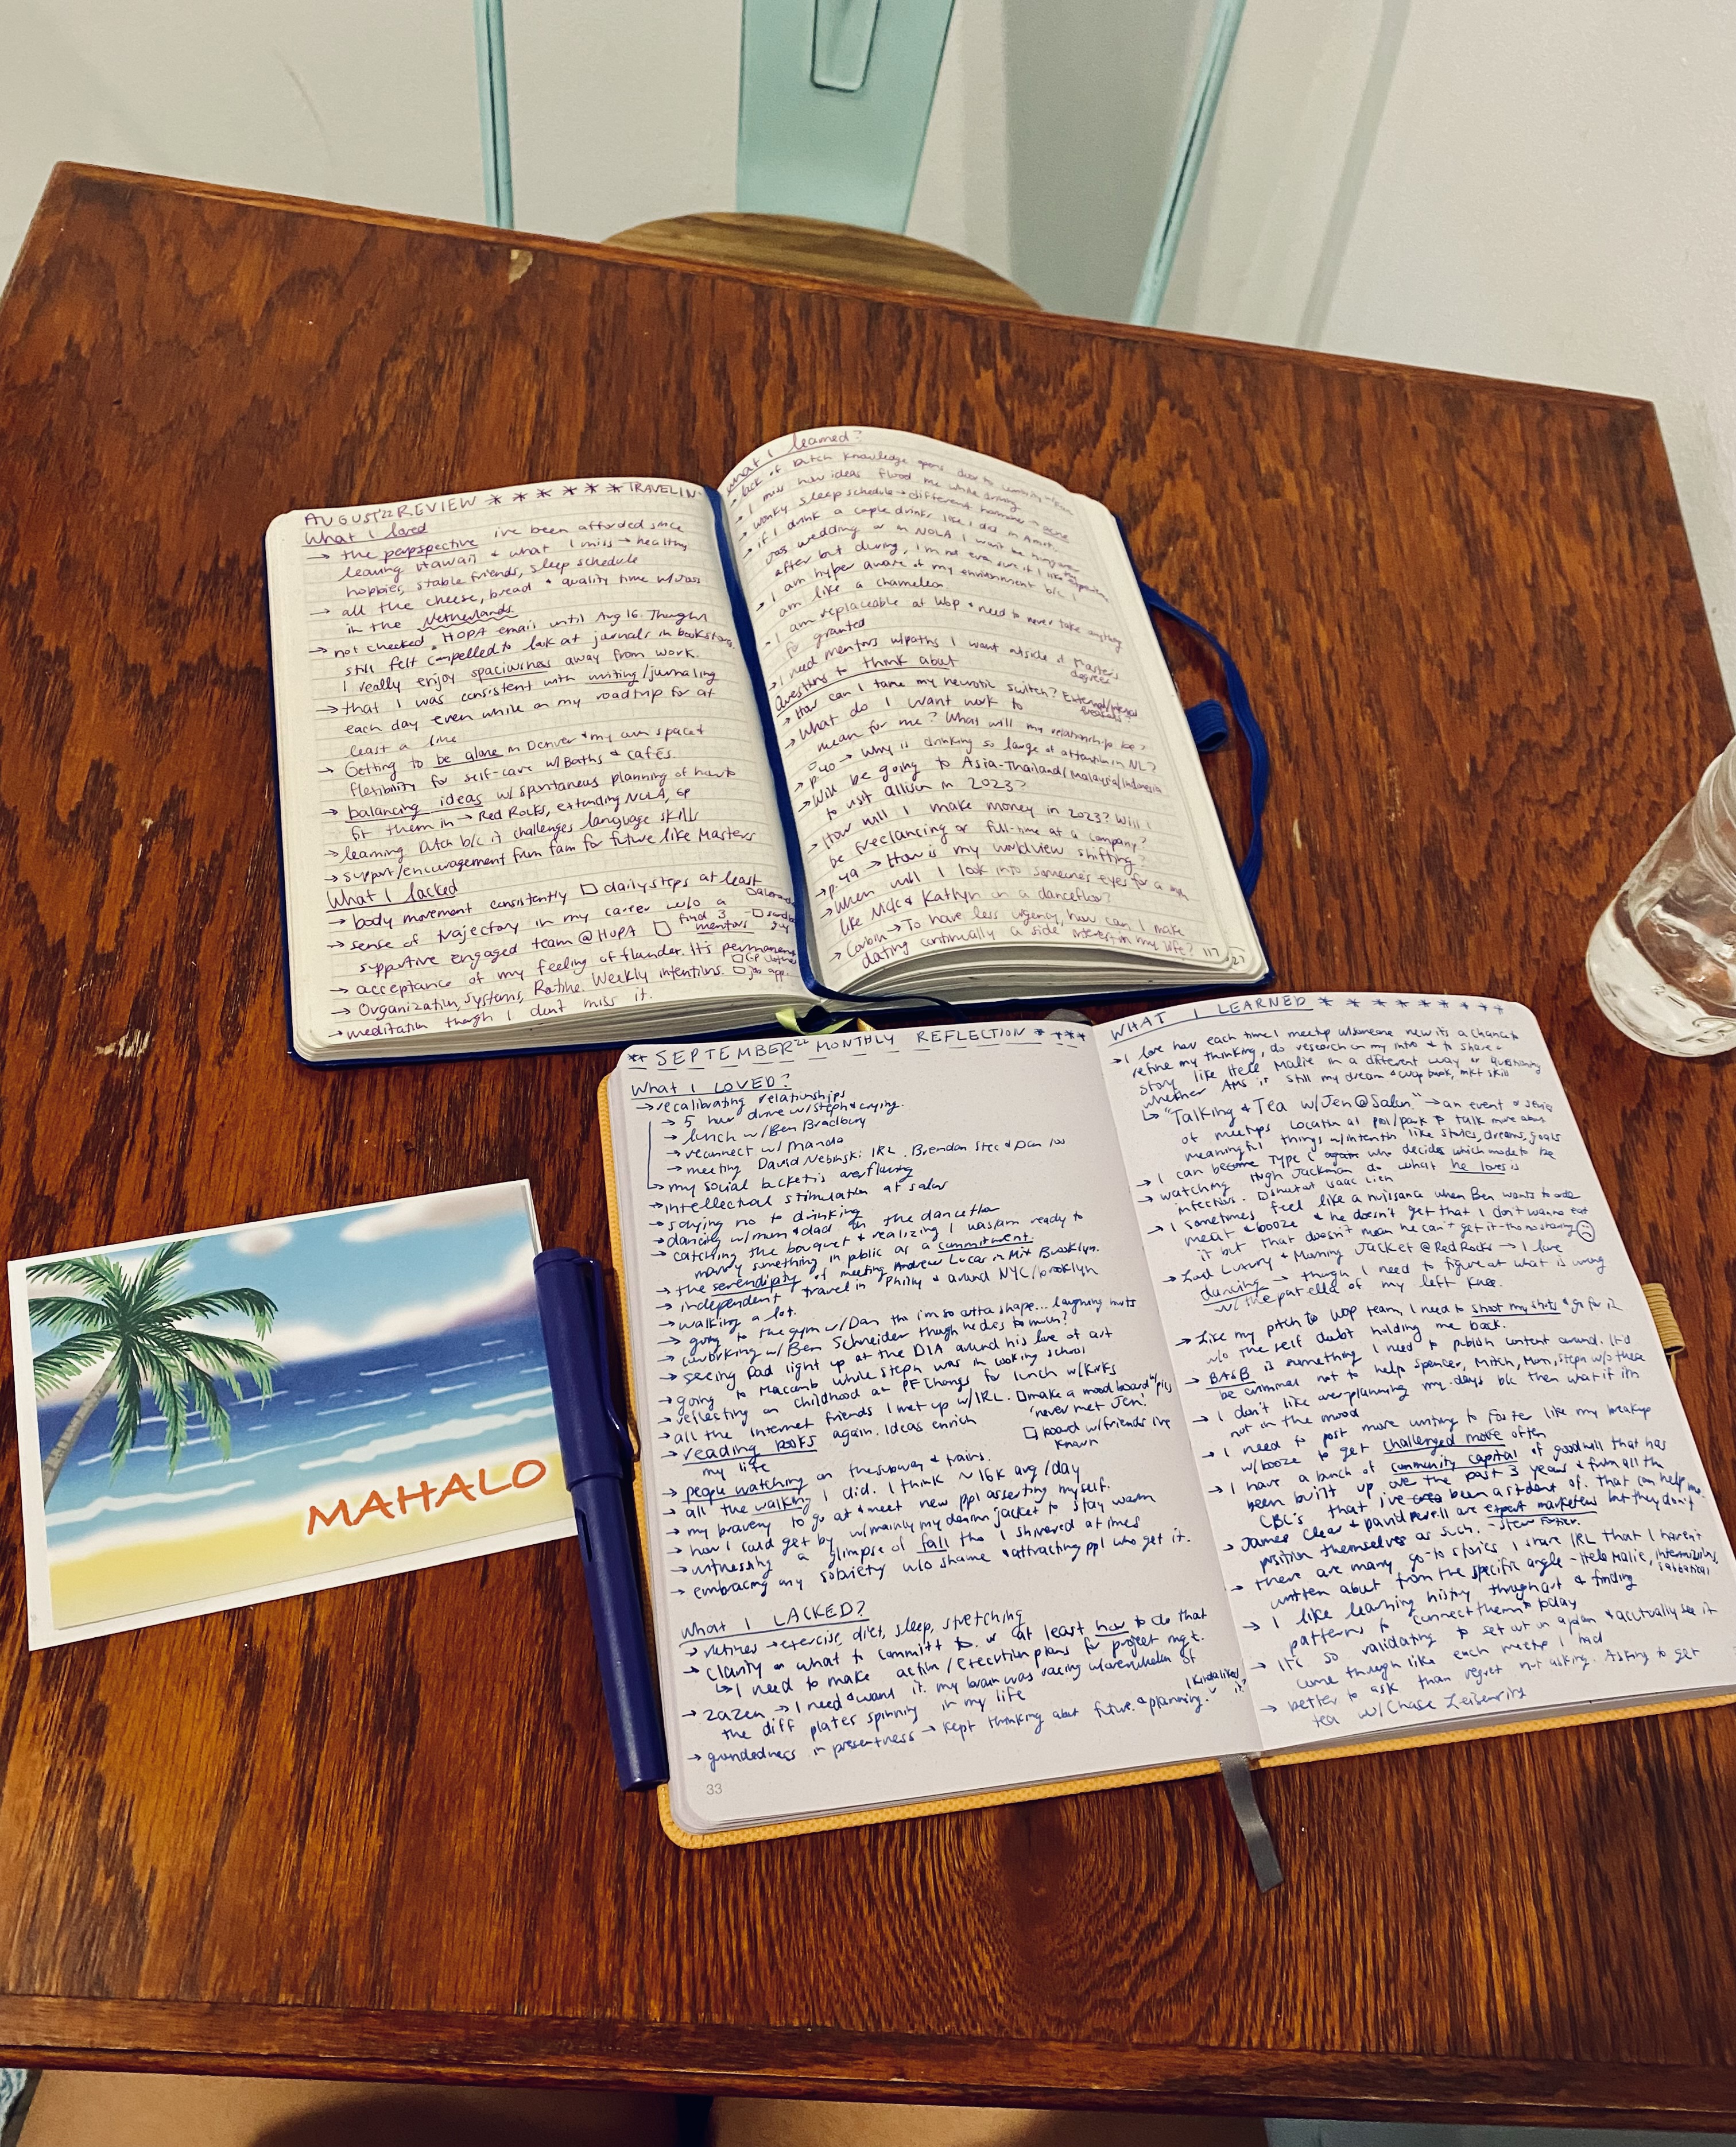 AUGUST '22 REVIEW * * * * * * * TRAVELIN
What I loved
→ the perspective i've been afforded since
leaving Hawaii & what I miss → healthy
hobbies, stable friends, sleep schedule
→ all the cheese, bread & quality time w/
in the Netherlands
→ not checked HOPA email until Aug 16. Though I
still felt compelled to look at journals in bookstores.
I really enjoy spaciousness away from work.
→ that I was consistent with writing/journaling
each day even while on my roadtrip for at
least a line
→ Getting to be alone in Denver & my own space &
flexibility for self-care w/Baths & cafés.
→ balancing ideas w/ spontaneous planning of how to
fit them in → Red Rocks, extending NOLA,
→ learning Dutch b/c it challenges language skills
→ support/encouragement from fam for future like Masters
What I lacked
→ body movement consistently □ daily steps at least
→ sense of trajectory in my career w/o a
supportive engaged team @ HOPA □ find 3 mentors
→ acceptance of my feeling of flounder. It's permanent
→ Organization, Systems, Routine. Weekly intentions. □ job app.
→ meditation though I don't miss it.
What I learned?
lack of Dutch knowledge
I miss how ideas flood me while driving
wonky sleep schedule → different hormone → acne
→ if I drink a couple drinks like I did in
wedding or in NOLA I won't be hungover
after but during, I'm not even sure if I like
I am hyper aware of my environment b/c I
am like a chameleon
I am replaceable at WOP & need to never take anything
for granted
→ I need mentors w/paths I want outside of Masters
degrees
Questions to think about
→ How can I tame my neurotic switch? External/internal
→ What do I want work to
mean for me? What will my relationship be?
→ p.40 → Why is drinking so large of attention in NL?
→ Will I be going to Asia-Thailand/Malaysia/Indonesia
to visit Allison in 2023?
→ How will I make money in 2023? Will I
be freelancing or full-time at a company?
→ p.49 → How is my worldview shifting?
→ When will I look into someone's eyes for a
like Nick & Kathryn on a dancefloor?
→ Corbin → To have less urgency, how can I make
dating continually a side interest in my life? 117
MAHALO
** SEPTEMBER '22 MONTHLY REFLECTION * ***
What I LOVED?
→ recalibrating relationships
→ 5 hour drive w/steph & crying.
→ lunch w/Ben Bradbury
→ reconnect w/ Manda
→ meeting David Nebinski IRL. Brendan Stec & Dan
→ my social bucket is overflowing
→ intellectual stimulation at salon
→ saying no to drinking
→ dancing w/mom & dad on the dancefloor
→ catching the bouquet & realizing I was/am ready to
marry something in public as a commitment.
→ the serendipity of meeting Andrew Lucas in Brooklyn.
→ independent travel in Philly & around NYC/brooklyn
→ walking a lot.
→ going to the gym w/Dan tho i'm so outta shape... laughing hurts
→ coworking w/ Ben Schneider though he does to much?
→ seeing Dad light up at the DIA around his love of art
→ going to Maccomb while steph was in cooking school
→ reflecting on childhood at PF Changs for lunch w/Kirks
→ all the Internet friends I met up w/IRL. □ make a mood board w/pics
'never met Jen!'
→ reading books again. Ideas enrich
my life
□ board w/friends I've
known
→ people watching on the subway & trains.
→ all the walking I did. I think ~ 16K avg/day
→ my bravery to go out & meet new ppl asserting myself.
→ how I could get by w/mainly my denim jacket to stay warm
→ witnessing a glimpse of fall tho I shivered at times
→ embracing my sobriety w/o shame & attracting ppl who get it.
What I LACKED?
→ routines → exercise, diet, sleep, stretching
→ clarity on what to committ to. or at least how to do that
↳ I need to make action/execution plans for project mgt.
→ zazen → I need & want it. my brain was racing w/overwhelm of
the diff plates spinning in my life
→ groundedness in presentness → kept thinking about future & planning. (Kinda liked it)
33
WHAT I LEARNED * * * * * * * * * *
→ I love how each time I meetup w/someone new its a chance to
refine my thinking, do research on my intro & to share a
story like Hele Malie in a different way or questioning
whether AMS is still my dream & WOP book, mkt skill
↳ "Talking & Tea w/Jen @Salon" → an event or series
of meetups located at pool/park to talk more about
meaningful things w/intentn like stories, dreams, goals
→ I can become Type C again who decides which mode to be
→ watching Hugh Jackman do what he loves is
infectious. Isaac Lien
→ I sometimes feel like a nuissance when Ben wants to order
meat & booze & he doesn't get that I don't wanna eat
it but that doesn't mean he can't get it - tho no sharing ☹
→ Lord Luxury & Morning Jacket @ Red Rocks → I love
dancing → though I need to figure out what is wrong
w/ the patella of my left knee.
→ Like my pitch to WOP team, I need to shoot my shots & go for it
w/o the self doubt holding me back.
→ BASB is something I need to publish content around. It'd
be criminal not to help Spencer, Mitch, Mom, Steph w/o these
→ I don't like overplanning my days b/c then what if i'm
not in the mood
→ I need to post more writing to Foster like my breakup
w/booze to get challenged more often
→ I have a bunch of community capital of goodwill that has
been built up over the past 3 years & from all the
CBC's that i've been a student of. that can help me.
→ James Clear & David Perell are expert marketers but they don't
position themselves as such. - Stew Fortier.
→ there are many go-to stories I share IRL that I haven't
written about from the specific angle - Hele Malie, internship, sabbatical
→ I like learning history through art & finding
patterns to connect them to today
→ It's so validating to set out on a plan & acutually see it
come through like each meetup I had
→ better to ask than regret not asking. Asking to get
tea w/Chase